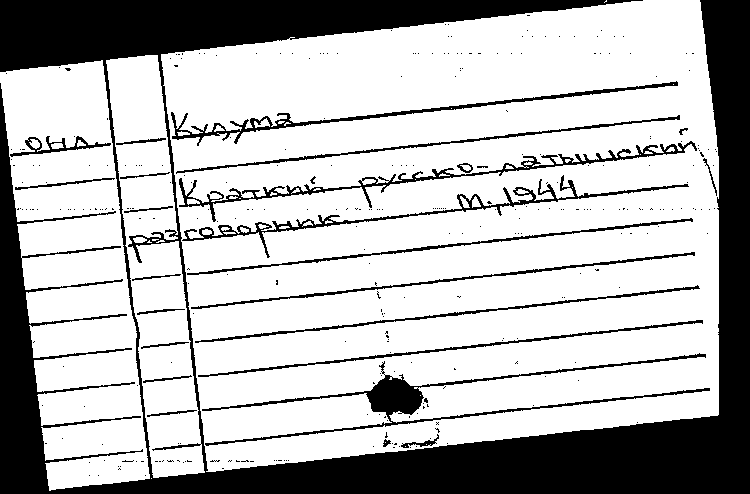 ОНЛ. Кудума
Краткий русско-латышский
разговорник М., 1944.